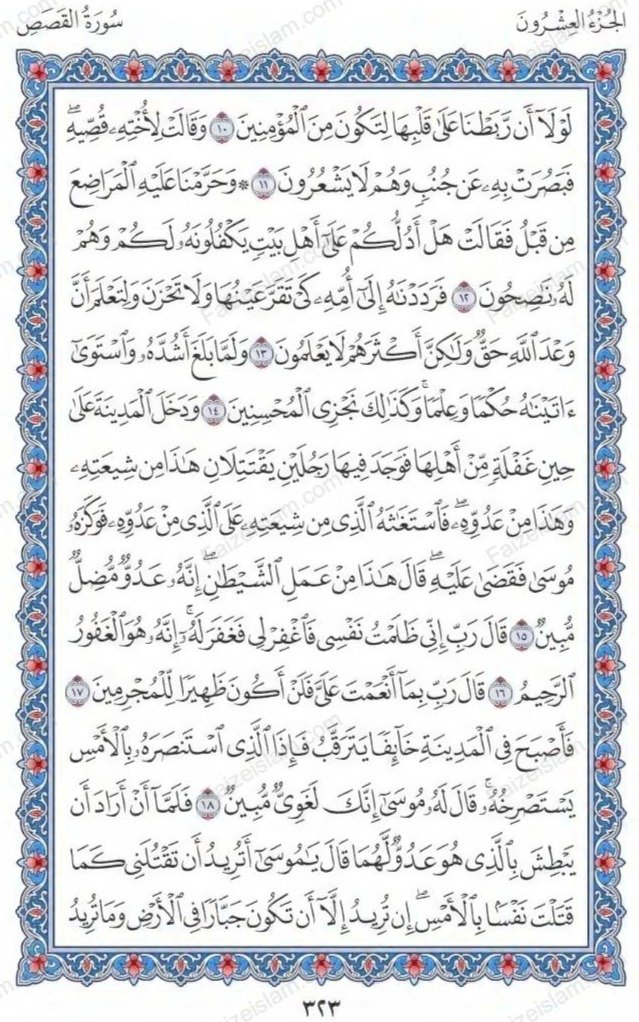 الجُزْءُ العِشْرُونَ
سُورَةُ القَصَصِ
لَوْلَآ أَن رَّبَطْنَا عَلَىٰ قَلْبِهَا لِتَكُونَ مِنَ ٱلْمُؤْمِنِينَ ١٠ وَقَالَتْ لِأُخْتِهِۦ قُصِّيهِۖ
فَبَصُرَتْ بِهِۦ عَن جُنُبٍ وَهُمْ لَا يَشْعُرُونَ ١١ * وَحَرَّمْنَا عَلَيْهِ ٱلْمَرَاضِعَ
مِن قَبْلُ فَقَالَتْ هَلْ أَدُلُّكُمْ عَلَىٰٓ أَهْلِ بَيْتٍ يَكْفُلُونَهُۥ لَكُمْ وَهُمْ
لَهُۥ نَٰصِحُونَ ١٢ فَرَدَدْنَٰهُ إِلَىٰٓ أُمِّهِۦ كَىْ تَقَرَّ عَيْنُهَا وَلَا تَحْزَنَ وَلِتَعْلَمَ أَنَّ
وَعْدَ ٱللَّهِ حَقٌّ وَلَٰكِنَّ أَكْثَرَهُمْ لَا يَعْلَمُونَ ١٣ وَلَمَّا بَلَغَ أَشُدَّهُۥ وَٱسْتَوَىٰٓ
ءَاتَيْنَٰهُ حُكْمًا وَعِلْمًاۚ وَكَذَٰلِكَ نَجْزِى ٱلْمُحْسِنِينَ ١٤ وَدَخَلَ ٱلْمَدِينَةَ عَلَىٰ
حِينِ غَفْلَةٍ مِّنْ أَهْلِهَا فَوَجَدَ فِيهَا رَجُلَيْنِ يَقْتَتِلَانِ هَٰذَا مِن شِيعَتِهِۦ
وَهَٰذَا مِنْ عَدُوِّهِۦۖ فَٱسْتَغَٰثَهُ ٱلَّذِى مِن شِيعَتِهِۦ عَلَى ٱلَّذِى مِنْ عَدُوِّهِۦ فَوَكَزَهُۥ
مُوسَىٰ فَقَضَىٰ عَلَيْهِۖ قَالَ هَٰذَا مِنْ عَمَلِ ٱلشَّيْطَٰنِۖ إِنَّهُۥ عَدُوٌّ مُّضِلٌّ
مُّبِينٌ ١٥ قَالَ رَبِّ إِنِّى ظَلَمْتُ نَفْسِى فَٱغْفِرْ لِى فَغَفَرَ لَهُۥٓۚ إِنَّهُۥ هُوَ ٱلْغَفُورُ
ٱلرَّحِيمُ ١٦ قَالَ رَبِّ بِمَآ أَنْعَمْتَ عَلَىَّ فَلَنْ أَكُونَ ظَهِيرًا لِّلْمُجْرِمِينَ ١٧
فَأَصْبَحَ فِى ٱلْمَدِينَةِ خَآئِفًا يَتَرَقَّبُ فَإِذَا ٱلَّذِى ٱسْتَنصَرَهُۥ بِٱلْأَمْسِ
يَسْتَصْرِخُهُۥۚ قَالَ لَهُۥ مُوسَىٰٓ إِنَّكَ لَغَوِىٌّ مُّبِينٌ ١٨ فَلَمَّآ أَنْ أَرَادَ أَن
يَبْطِشَ بِٱلَّذِى هُوَ عَدُوٌّ لَّهُمَا قَالَ يَٰمُوسَىٰٓ أَتُرِيدُ أَن تَقْتُلَنِى كَمَا
قَتَلْتَ نَفْسًۢا بِٱلْأَمْسِۖ إِن تُرِيدُ إِلَّآ أَن تَكُونَ جَبَّارًا فِى ٱلْأَرْضِ وَمَا تُرِيدُ
٣٢٣
Faizeislam.com